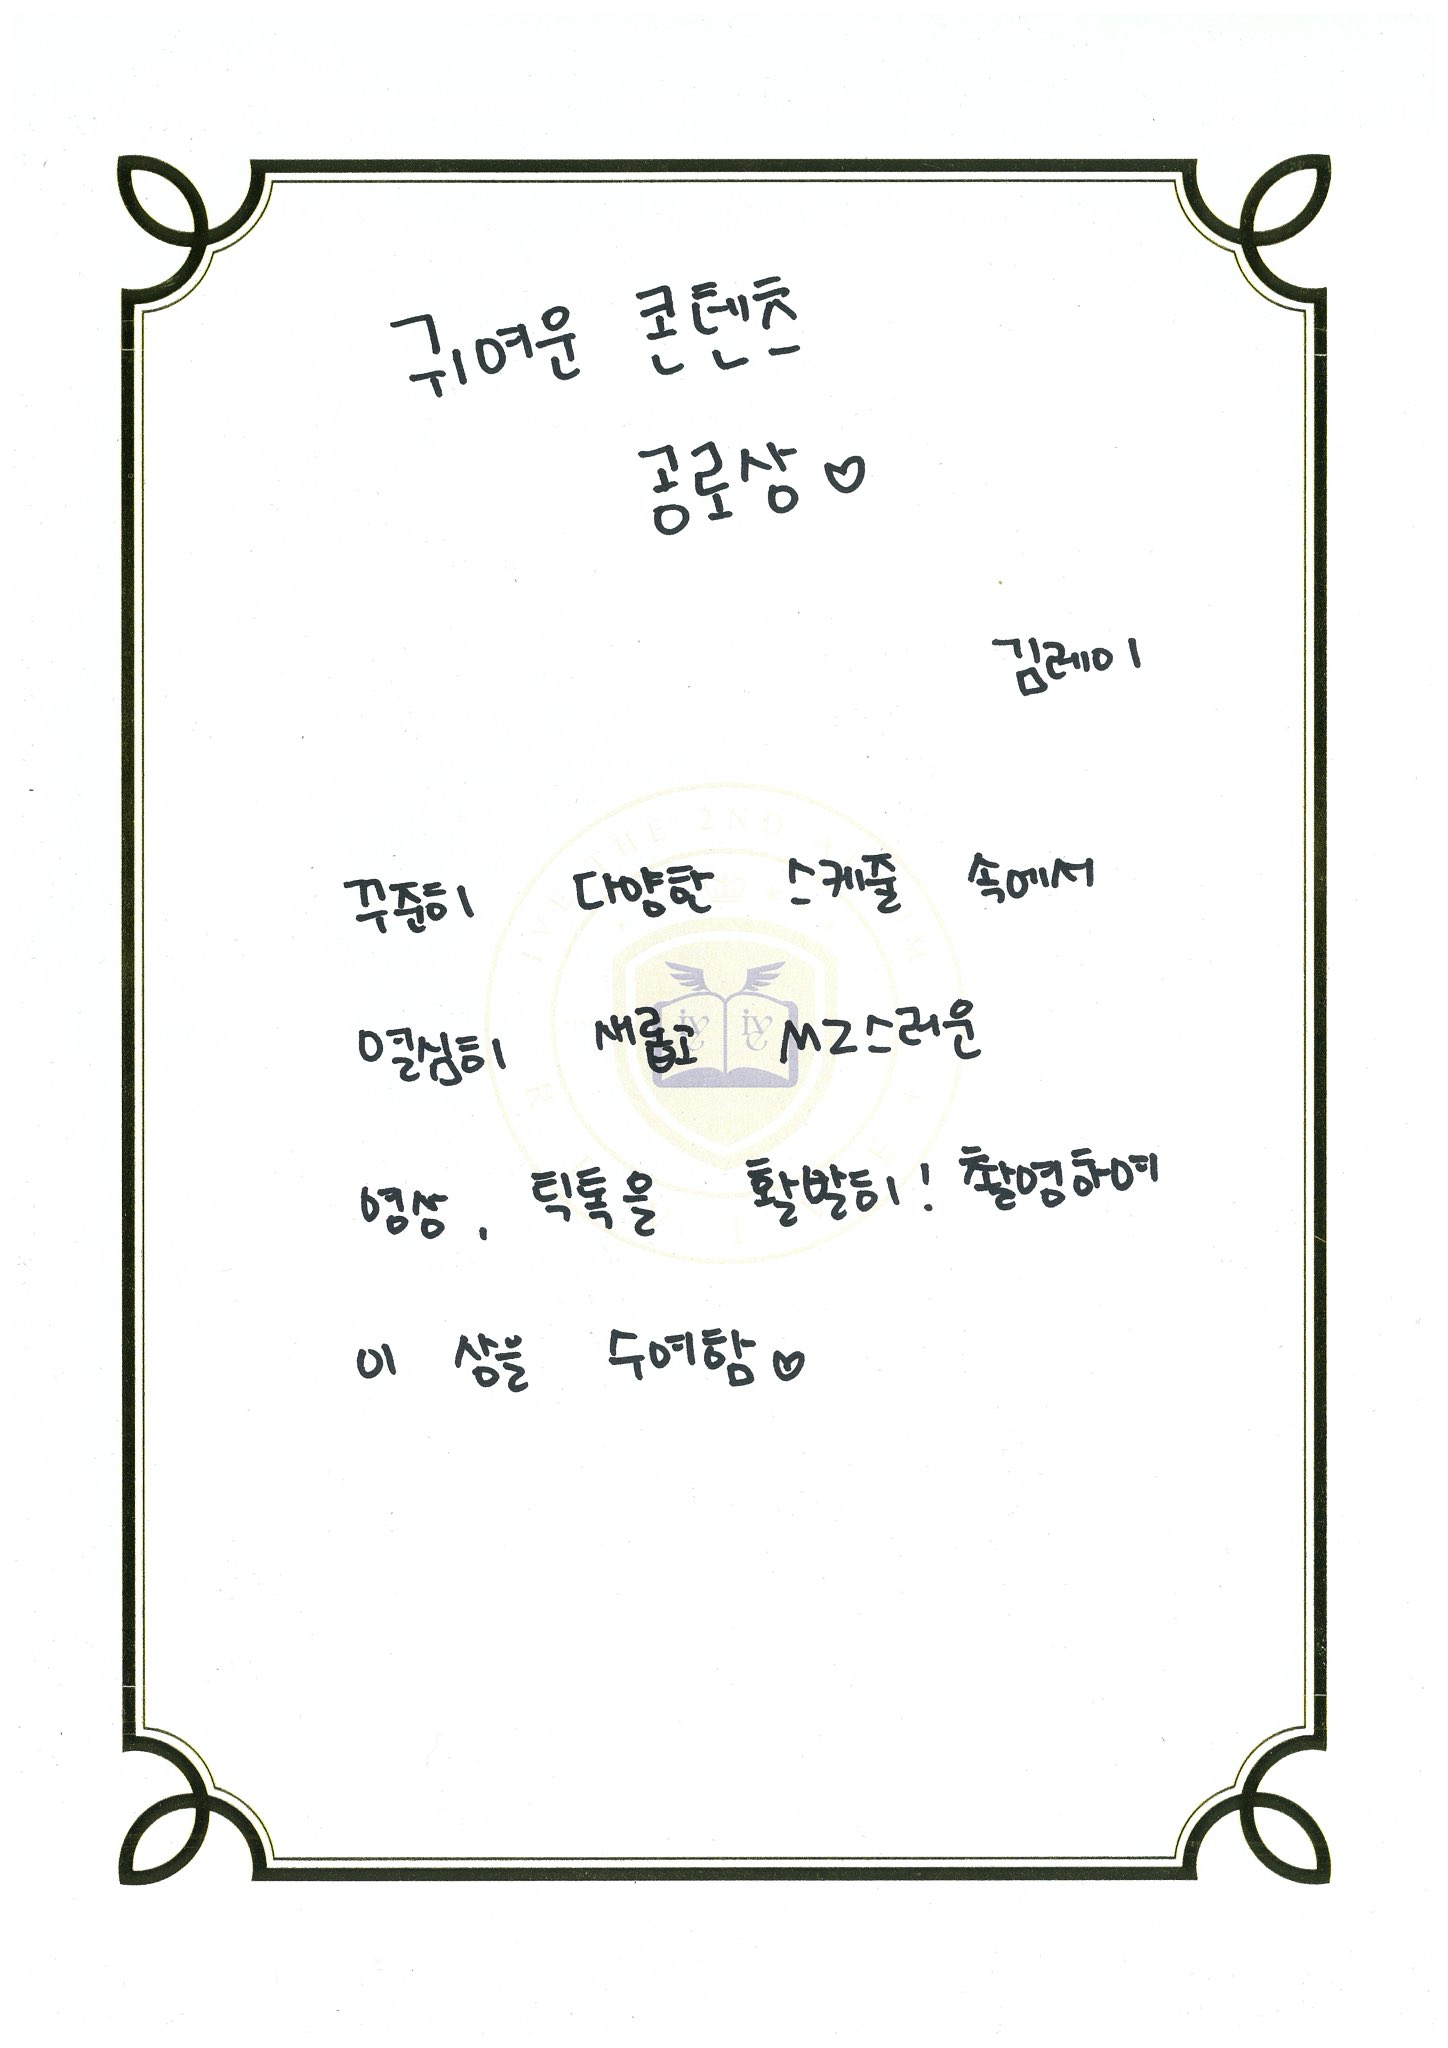 귀여운 콘텐츠
공로상♡
김레이
꾸준히 다양한 스케줄 속에서
열심히 새롭고 MZ스러운
영상, 틱톡을 활발히! 촬영하여
이 상을 수여함♡